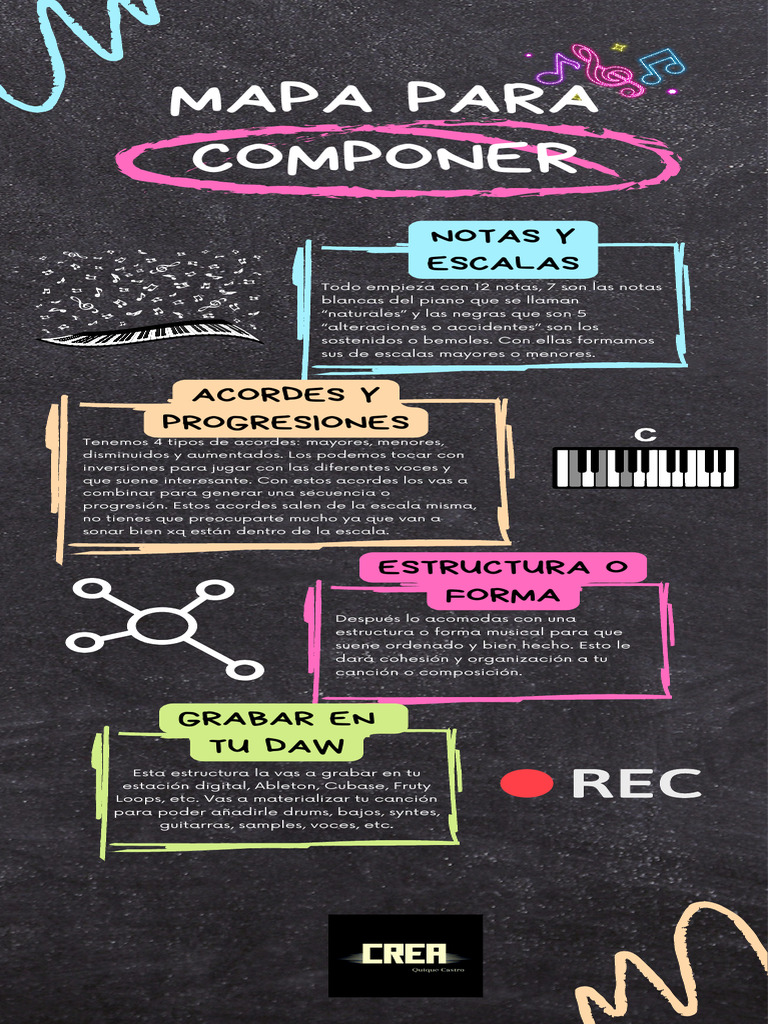 MAPA PARA
COMPONER
NOTAS Y
ESCALAS
Todo empieza con 12 notas, 7 son las notas
blancas del piano que se llaman
“naturales” y las negras que son 5
“alteraciones o accidentes” son los
sostenidos o bemoles. Con ellas formamos
sus de escalas mayores o menores.
ACORDES Y
PROGRESIONES
Tenemos 4 tipos de acordes: mayores, menores,
disminuidos y aumentados. Los podemos tocar con
inversiones para jugar con las diferentes voces y
que suene interesante. Con estos acordes los vas a
combinar para generar una secuencia o
progresión. Estos acordes salen de la escala misma,
no tienes que preocuparte mucho ya que van a
sonar bien xq están dentro de la escala.
C
ESTRUCTURA O
FORMA
Después lo acomodas con una
estructura o forma musical para que
suene ordenado y bien hecho. Esto le
dará cohesión y organización a tu
canción o composición.
GRABAR EN
TU DAW
Esta estructura la vas a grabar en tu
estación digital, Ableton, Cubase, Fruty
Loops, etc. Vas a materializar tu canción
para poder añadirle drums, bajos, syntes,
guitarras, samples, voces, etc.
REC
CREA
Quique Castro